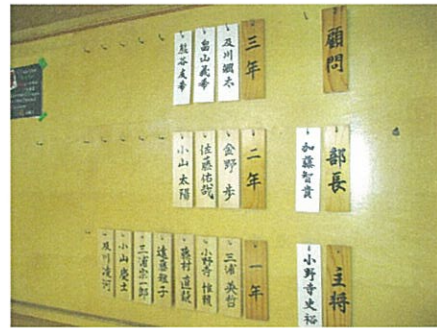 顧問
三年
及川颯太
畠山義希
熊谷友希
部長
加藤智貴
二年
金野歩
佐藤佑哉
小山太陽
主将
小野寺史裕
一年
三浦英哲
小野寺惟頼
藤村直誠
遠藤雅子
三浦宗一郎
小山慶士
及川凌河